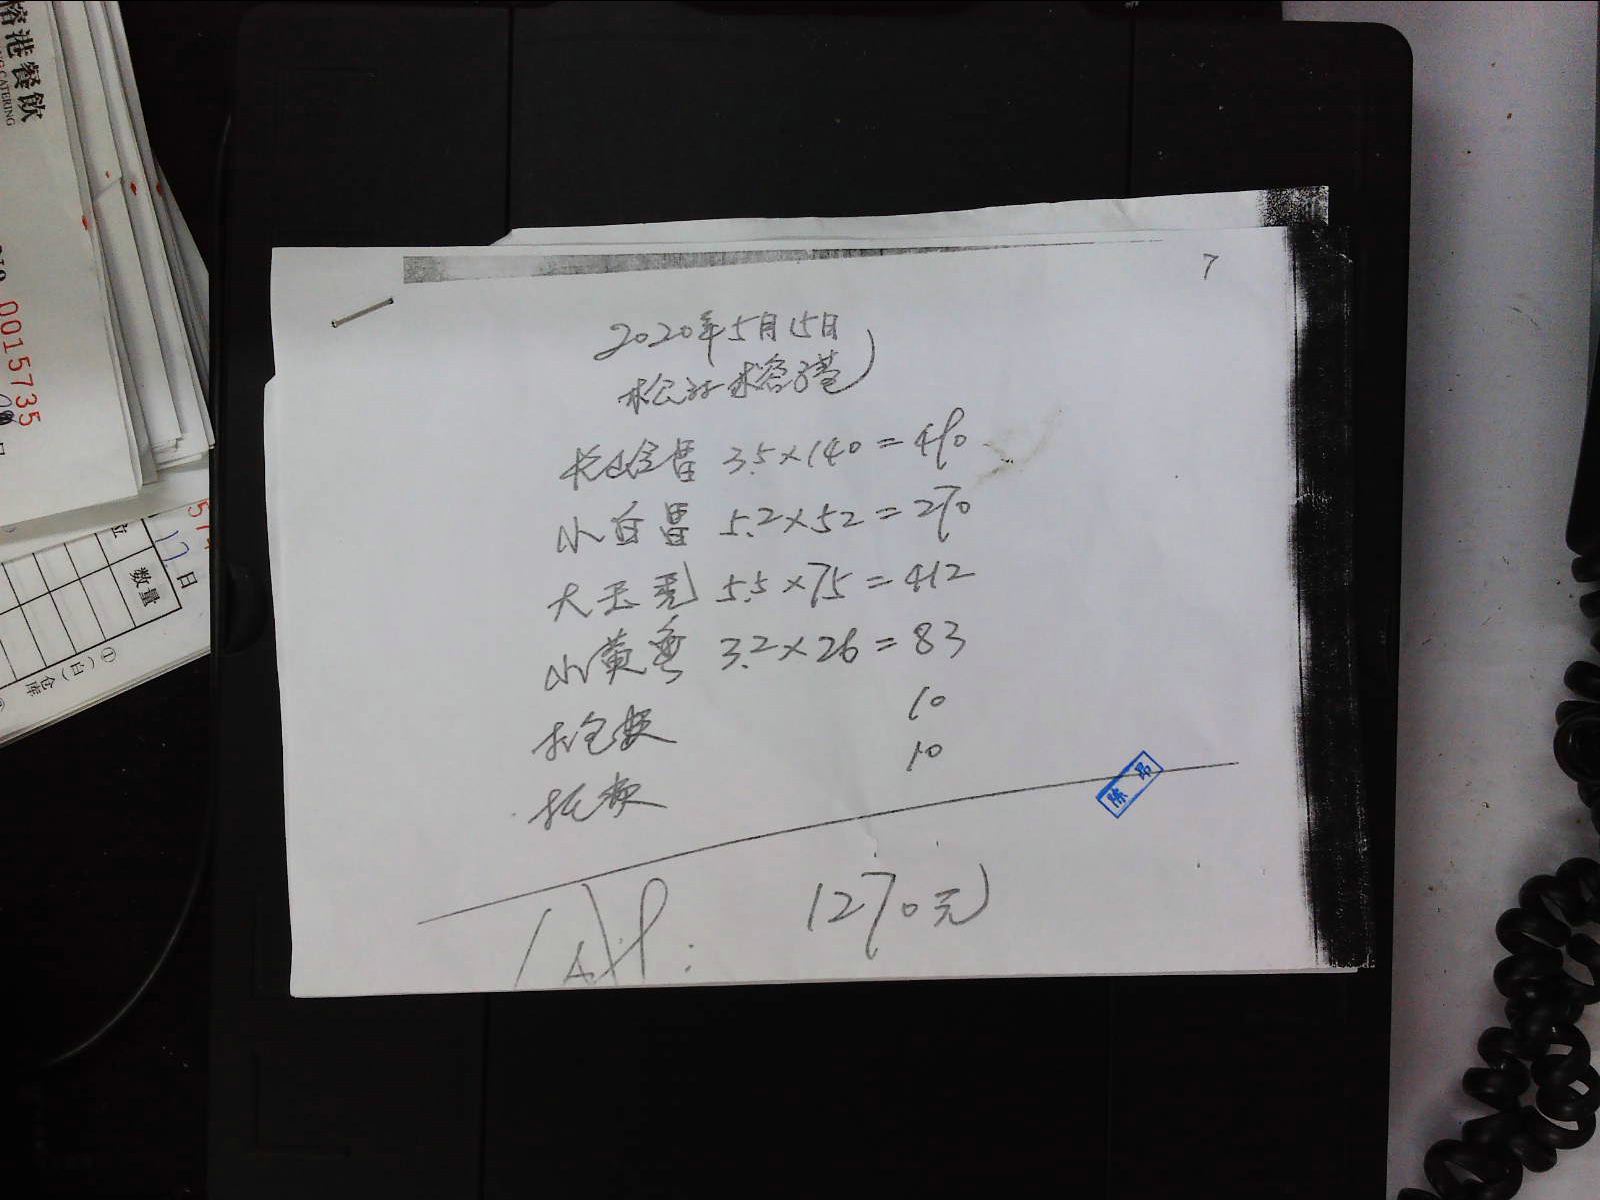 榕港餐飲
NG CATERING
0015735
日
17日
位
数量
①(白)仓库
7
2020年5月15日
松江榕港
3.5×140=490
小白昌 5.2×52=270
大玉秃 5.5×75=412
小黄鱼 3.2×26=83
打包费 10
托费 10
陈昂
1270元